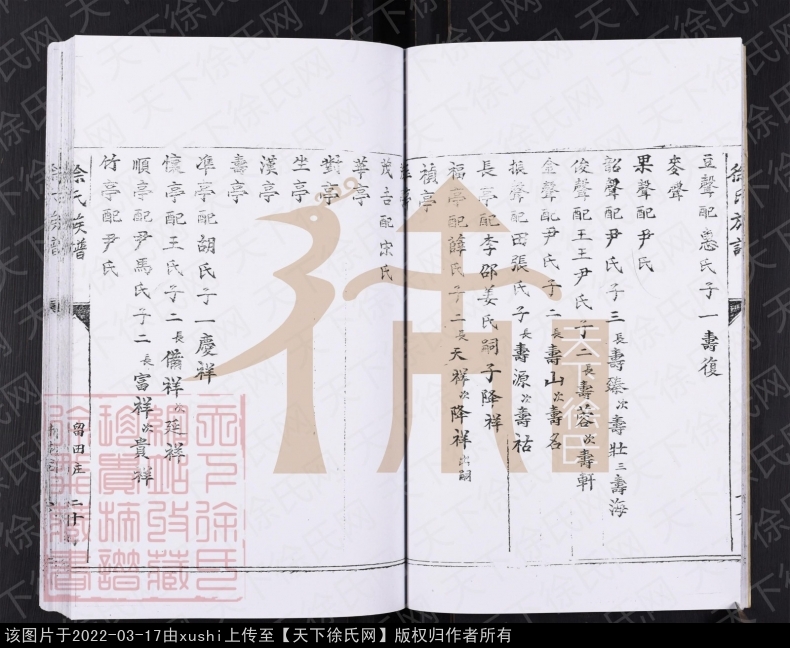 徐氏族譜
豆聲配悤氏子一壽復
麥聲
果聲配尹氏
韶聲配尹氏子三長壽臻次壽壯三壽海
俊聲配王王尹氏子二長壽蓉次壽軒
金聲配尹氏子二長壽山次壽名
振聲配田張氏子長壽源次壽祜
長亭配李邵姜氏嗣子降祥
福亭配薛氏子二長天祥次降祥出嗣
禎亭
亭
茂吉配宋氏
華亭
對亭
坐亭
漢亭
壽亭
準亭配胡氏子一慶祥
懷亭配王氏子二長備祥次延祥
順亭配尹馬氏子二長富祥次貴祥
竹亭配尹氏
徐氏族譜
留田庄
二十
天下徐氏
天下徐氏網收藏
徐氏珍貴族譜
该图片于2022-03-17由xushi上传至【天下徐氏网】版权归作者所有